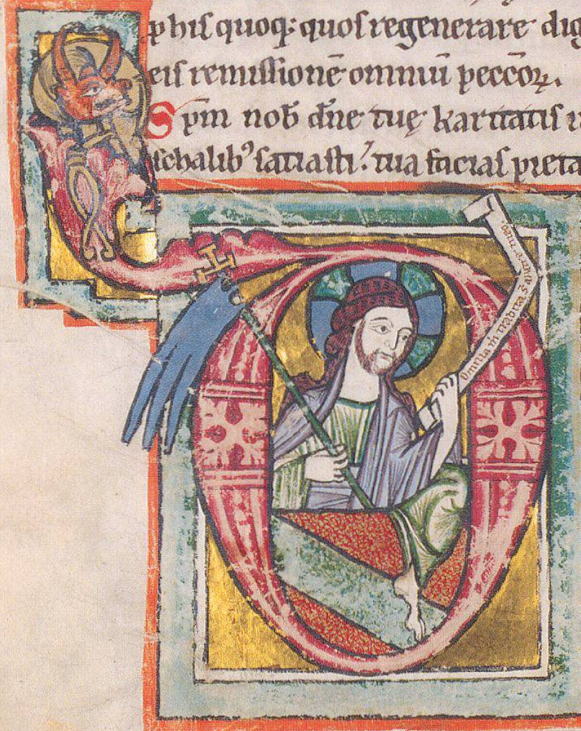 p his quoq; quos regenerare dig
eis remissionē omniū peccōꝝ.
Spm nob̄ dn̄e tuę karitatis i
schalibꝰ satiasti. tua facias pieta
Omnia m̄